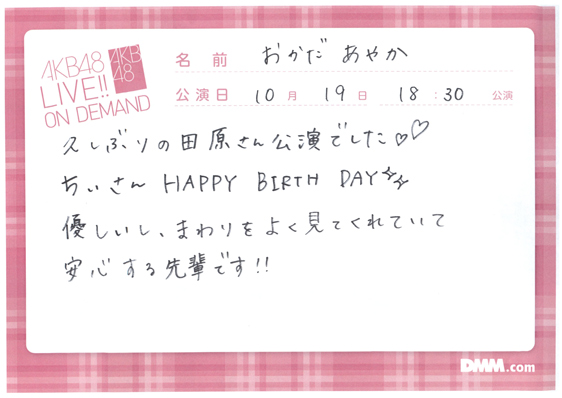 AKB48
LIVE!!
ON DEMAND
AKB
48
名前 おかだ あやか
公演日 10月 19日 18:30 公演
久しぶりの田原さん公演でした♡♡
ちぃさん HAPPY BIRTH DAY✨
優しいし、まわりをよく見てくれていて
安心する先輩です!!
DMM.com